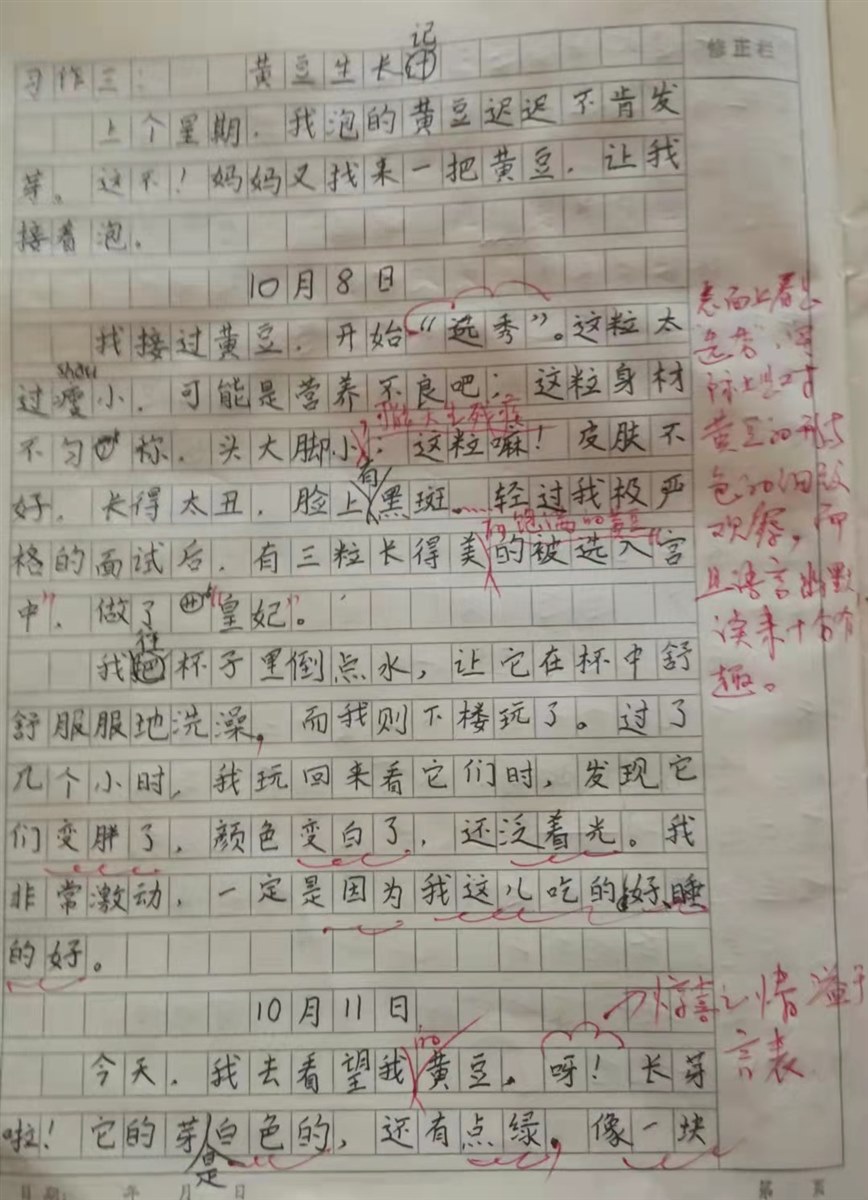 修正栏
习作三：黄豆生长记
上个星期，我泡的黄豆迟迟不肯发
芽。这不！妈妈又找来一把黄豆，让我
接着泡。
10月8日
我接过黄豆，开始“选秀”。这粒太
过瘦小，可能是营养不良吧；这粒身材
shòu
不匀称，头大脚小；这粒嘛！皮肤不
，可能天生残疾
好，长得太丑，脸上有黑斑……轻过我极严
格的面试后，有三粒长得美的被选入“宫
饱满的黄豆
中”，做了“皇妃”。
我往杯子里倒点水，让它在杯中舒
舒服服地洗澡，而我则下楼玩了。过了
几个小时，我玩回来看它们时，发现它
们变胖了，颜色变白了，还泛着光。我
非常激动，一定是因为我这儿吃的好、睡
的好。
10月11日
今天，我去看望我的黄豆，呀！长芽
啦！它的芽是白色的，还有点绿，像一块
表面上看是
选秀，实
际上是对
黄豆的形与
色的细致
观察，而
且语言幽默
读来十分有
趣。
惊喜之情溢于
言表
年 月 日
第 页